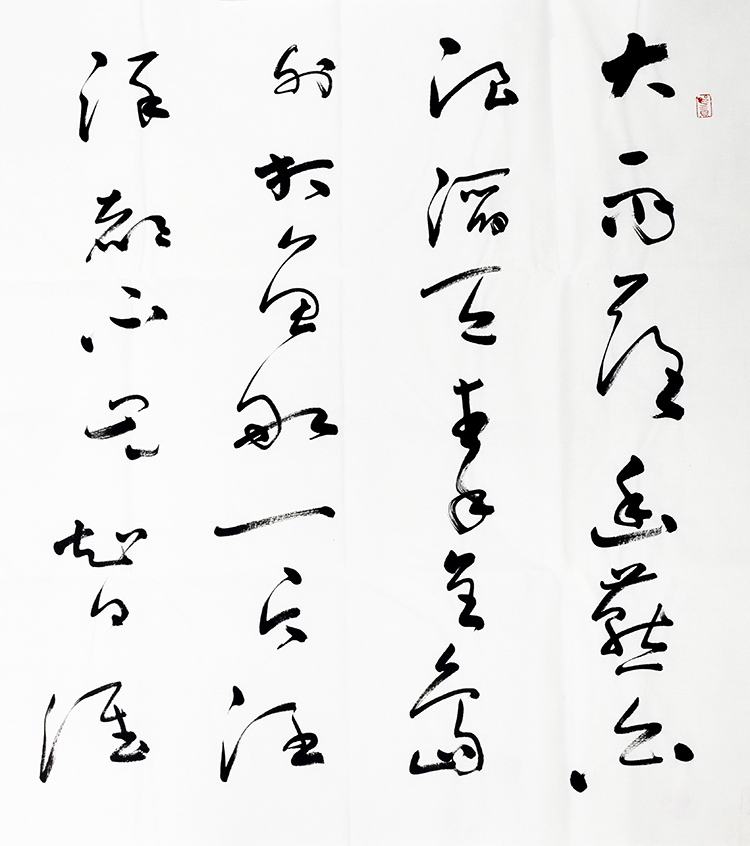 大雨落幽燕白
浪滔天秦皇島
外打魚船一片汪
洋都不見知向誰